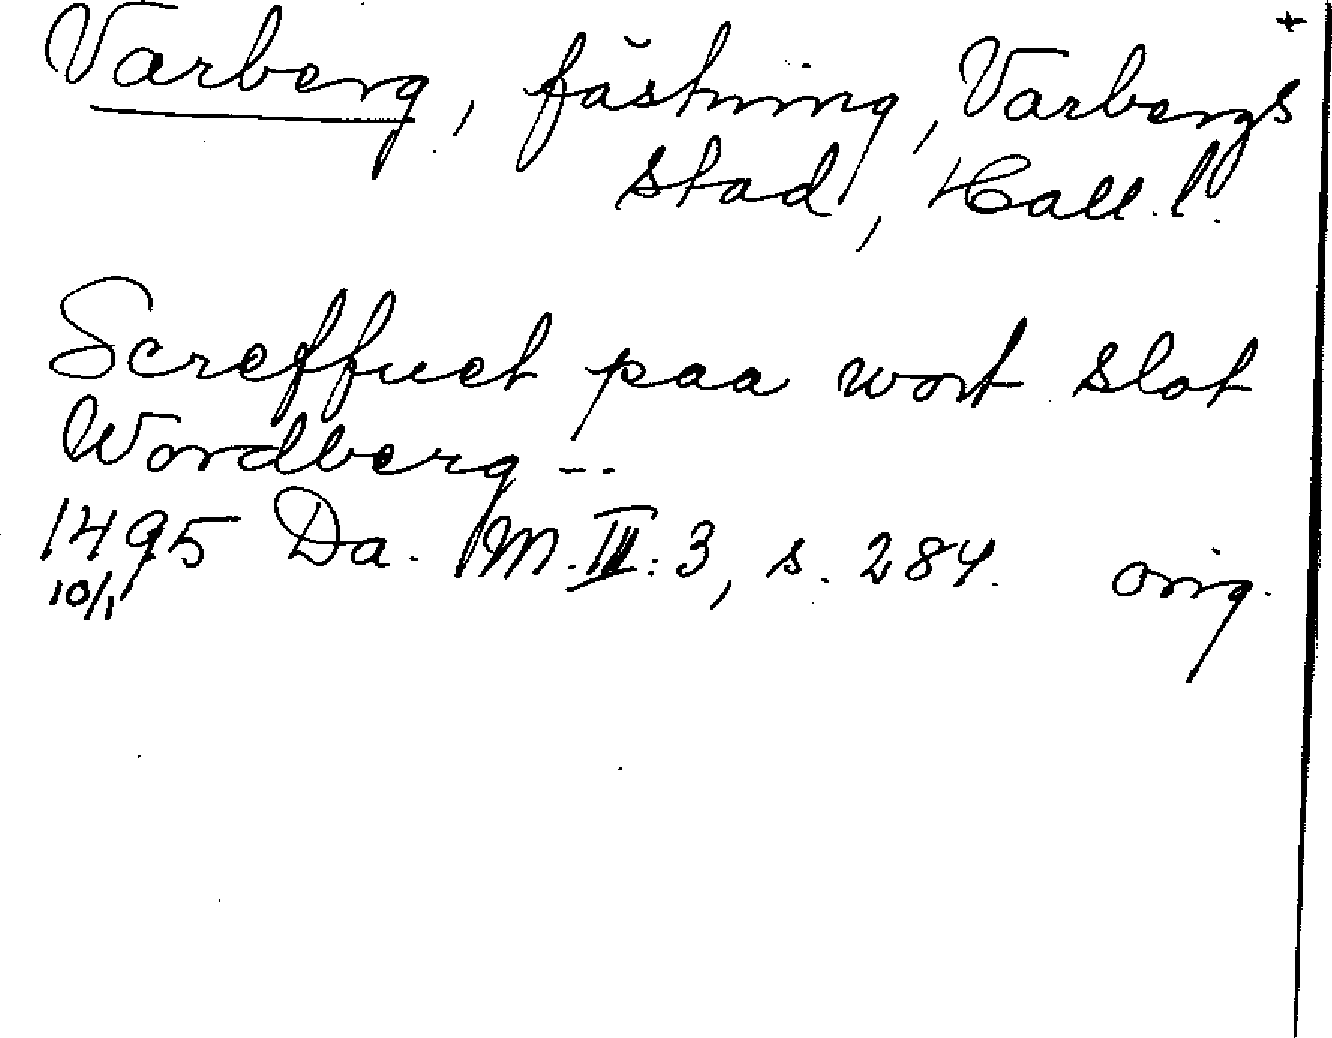 +
Varberg, fästning, Varbergs
stad, Hall. l.
Screffuet paa wort slot
Wordberg --
1495 Da. M. III: 3, s. 284. orig.
10/1